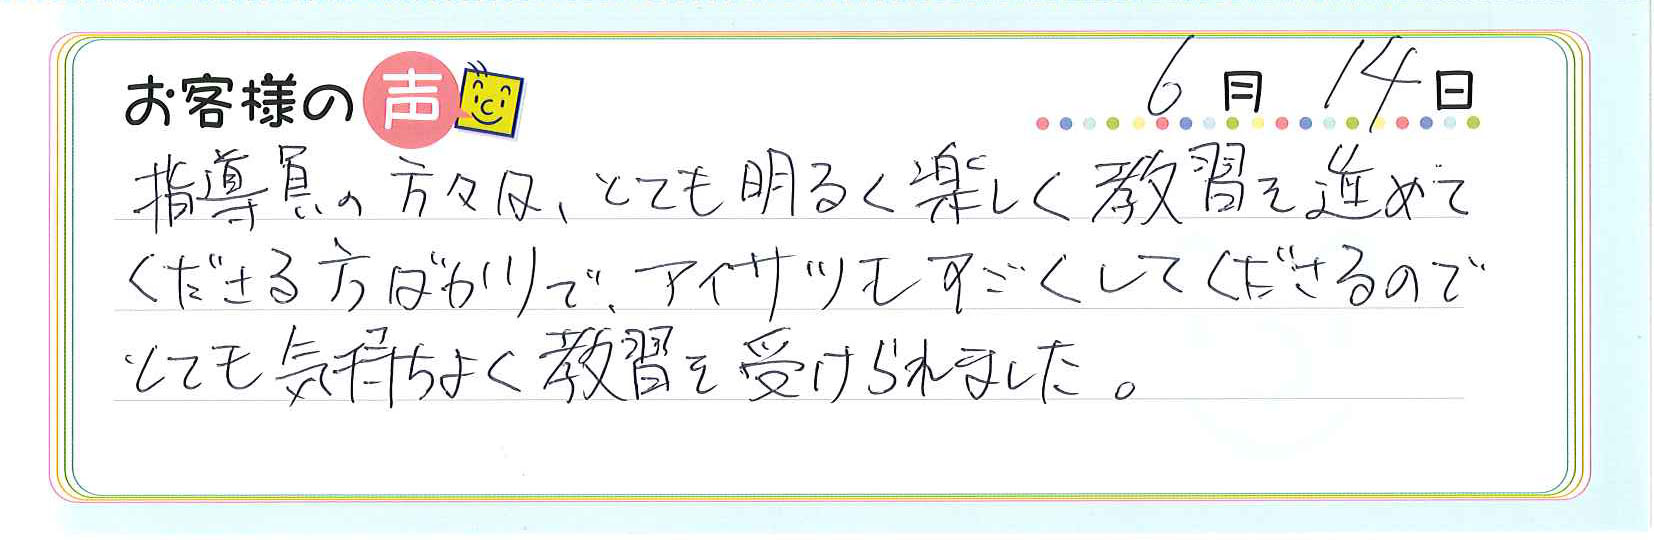 お客様の声
6月14日
指導員の方々は、とても明るく楽しく教習を進めて
くださる方ばかりで、アイサツもすごくしてくださるので
とても気持ちよく教習を受けられました。